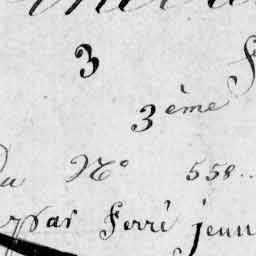 3
3ème
Du N° 558..
par Ferré jeun